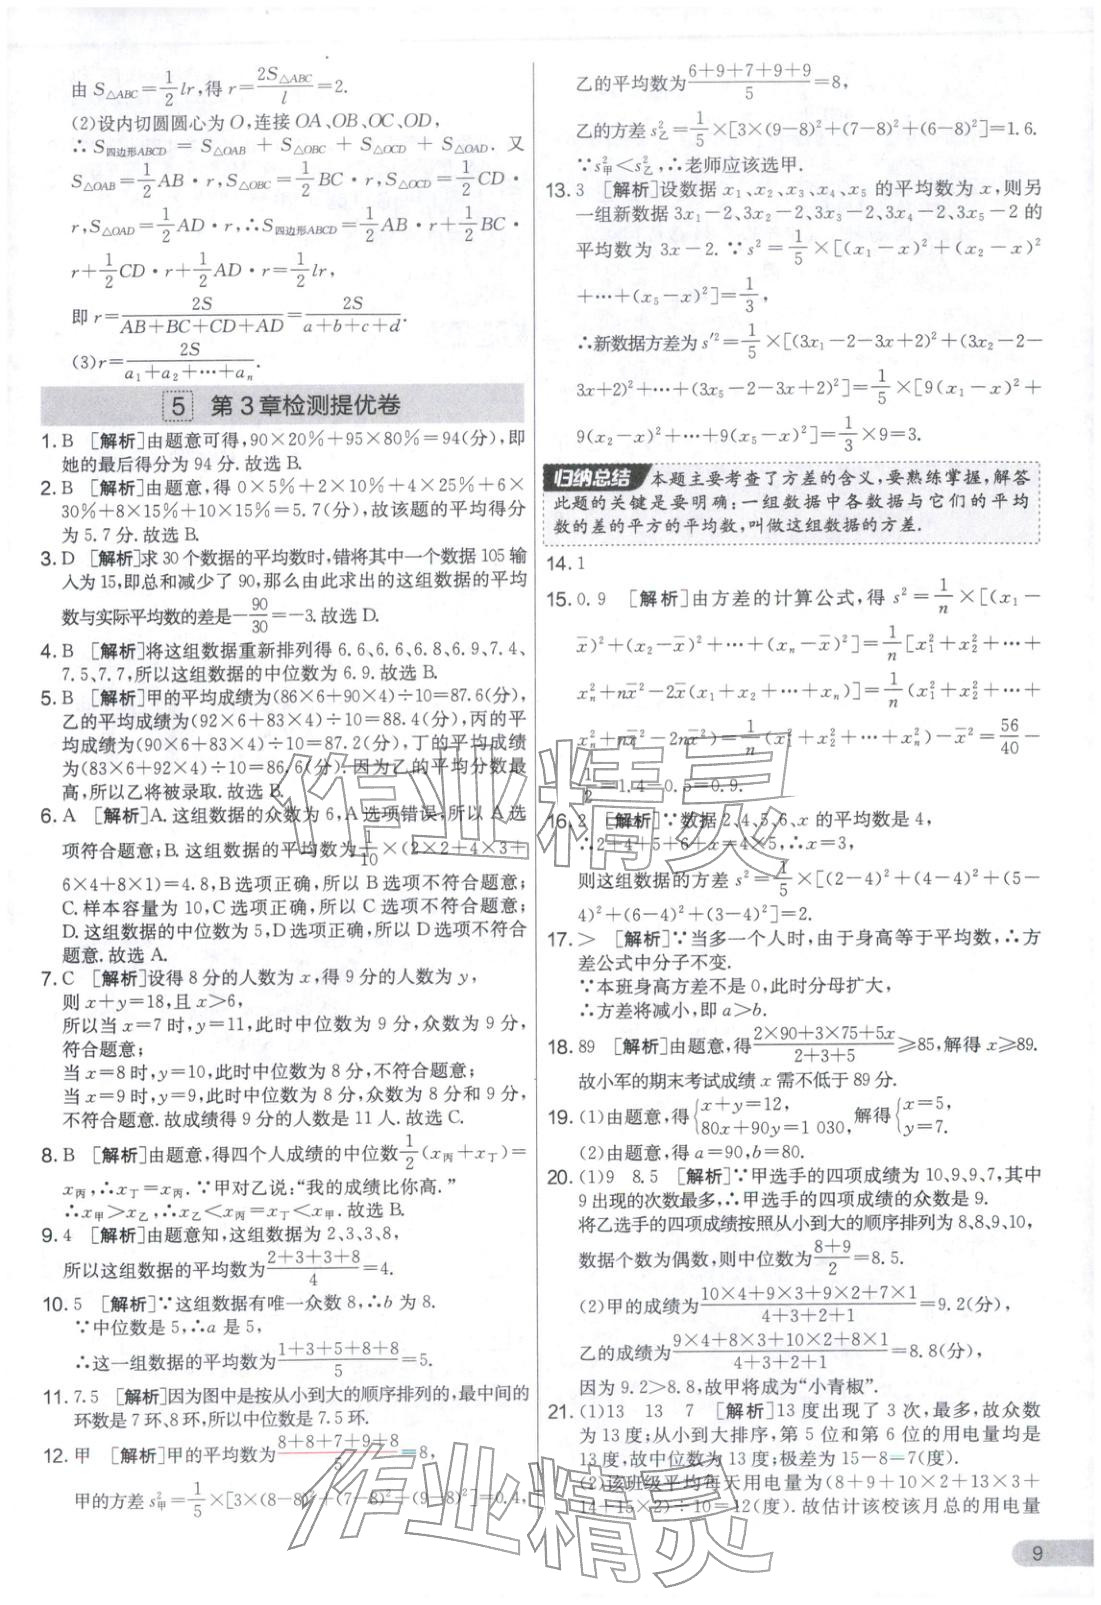 由 S△ABC=1/2 lr,得 r=2S△ABC/l=2.
(2)设内切圆圆心为 O,连接 OA、OB、OC、OD,
∴S四边形ABCD = S△OAB + S△OBC + S△OCD + S△OAD. 又
S△OAB=1/2 AB·r,S△OBC=1/2 BC·r,S△OCD=1/2 CD·
r,S△OAD=1/2 AD·r,∴S四边形ABCD=1/2 AB·r+1/2 BC·
r+1/2 CD·r+1/2 AD·r=1/2 lr,
即 r=2S/(AB+BC+CD+AD)=2S/(a+b+c+d).
(3)r=2S/(a₁+a₂+…+aₙ).
5 第3章检测提优卷
1. B [解析]由题意可得,90×20%+95×80%=94(分),即
她的最后得分为 94 分.故选 B.
2. B [解析]由题意,得 0×5%+2×10%+4×25%+6×
30%+8×15%+10×15%=5.7(分),故该题的平均得分
为 5.7 分.故选 B.
3. D [解析]求 30 个数据的平均数时,错将其中一个数据 105 输
入为 15,即总和减少了 90,那么由此求出的这组数据的平均
数与实际平均数的差是-90/30=-3.故选 D.
4. B [解析]将这组数据重新排列得 6.6、6.6、6.8、6.9、7.4、
7.5、7.7,所以这组数据的中位数为 6.9.故选 B.
5. B [解析]甲的平均成绩为(86×6+90×4)÷10=87.6(分),
乙的平均成绩为(92×6+83×4)÷10=88.4(分),丙的平
均成绩为(90×6+83×4)÷10=87.2(分),丁的平均成绩
为(83×6+92×4)÷10=86.6(分).因为乙的平均分数最
高,所以乙将被录取.故选 B.
6. A [解析]A. 这组数据的众数为 6,A 选项错误,所以 A 选
项符合题意;B. 这组数据的平均数为1/10×(2×2+4×3+
6×4+8×1)=4.8,B 选项正确,所以 B 选项不符合题意;
C. 样本容量为 10,C 选项正确,所以 C 选项不符合题意;
D. 这组数据的中位数为 5,D 选项正确,所以 D 选项不符合
题意.故选 A.
7. C [解析]设得 8 分的人数为 x,得 9 分的人数为 y,
则 x+y=18,且 x>6,
所以当 x=7 时,y=11,此时中位数为 9 分,众数为 9 分,
符合题意;
当 x=8 时,y=10,此时中位数为 8 分,不符合题意;
当 x=9 时,y=9,此时中位数为 8 分,众数为 8 分和 9 分,
不符合题意.故成绩得 9 分的人数是 11 人.故选 C.
8. B [解析]由题意,得四个人成绩的中位数1/2(x丙+x丁)=
x丙,∴x丁=x丙. ∵甲对乙说:“我的成绩比你高.”
∴x甲>x乙,∴x乙<x丙=x丁<x甲.故选 B.
9. 4 [解析]由题意知,这组数据为 2、3、3、8,
所以这组数据的平均数为(2+3+3+8)/4=4.
10. 5 [解析]∵这组数据有唯一众数 8,∴b 为 8.
∵中位数是 5,∴a 是 5,
∴这一组数据的平均数为(1+3+5+8+8)/5=5.
11. 7.5 [解析]因为图中是按从小到大的顺序排列的,最中间的
环数是 7 环、8 环,所以中位数是 7.5 环.
12. 甲 [解析]甲的平均数为(8+8+7+9+8)/5=8,
甲的方差 s²甲=1/5×[3×(8-8)²+(7-8)²+(9-8)²]=0.4,
乙的平均数为(6+9+7+9+9)/5=8,
乙的方差 s²乙=1/5×[3×(9-8)²+(7-8)²+(6-8)²]=1.6.
∵s²甲<s²乙,∴老师应该选甲.
13. 3 [解析]设数据 x₁、x₂、x₃、x₄、x₅ 的平均数为 x,则另
一组新数据 3x₁-2、3x₂-2、3x₃-2、3x₄-2、3x₅-2 的
平均数为 3x-2. ∵s²=1/5×[(x₁-x)²+(x₂-x)²
+…+(x₅-x)²]=1/3,
∴新数据方差为 s′²=1/5×[(3x₁-2-3x+2)²+(3x₂-2-
3x+2)²+…+(3x₅-2-3x+2)²]=1/5×[9(x₁-x)²+
9(x₂-x)²+…+9(x₅-x)²]=1/3×9=3.
归纳总结 本题主要考查了方差的含义,要熟练掌握,解答
此题的关键是要明确:一组数据中各数据与它们的平均
数的差的平方的平均数,叫做这组数据的方差.
14. 1
15. 0.9 [解析]由方差的计算公式,得 s²=1/n×[(x₁-
x̄)²+(x₂-x̄)²+…+(xₙ-x̄)²]=1/n[x₁²+x₂²+…+
xₙ²+nx̄²-2x̄(x₁+x₂+…+xₙ)]=1/n(x₁²+x₂²+…+
xₙ²+nx̄²-2nx̄²)=1/n(x₁²+x₂²+…+xₙ²)-x̄²=56/40-
1/2=1.4-0.5=0.9.
16. 2 [解析]∵数据 2、4、5、6、x 的平均数是 4,
∴2+4+5+6+x=4×5,∴x=3,
则这组数据的方差 s²=1/5×[(2-4)²+(4-4)²+(5-
4)²+(6-4)²+(3-4)²]=2.
17. > [解析]∵当多一个人时,由于身高等于平均数,∴方
差公式中分子不变.
∵本班身高方差不是 0,此时分母扩大,
∴方差将减小,即 a>b.
18. 89 [解析]由题意,得(2×90+3×75+5x)/(2+3+5)≥85,解得 x≥89.
故小军的期末考试成绩 x 需不低于 89 分.
19. (1)由题意,得{x+y=12, 80x+90y=1 030, 解得{x=5, y=7.
(2)由题意,得 a=90,b=80.
20. (1)9 8.5 [解析]∵甲选手的四项成绩为 10、9、9、7,其中
9 出现的次数最多,∴甲选手的四项成绩的众数是 9.
将乙选手的四项成绩按照从小到大的顺序排列为 8、8、9、10,
数据个数为偶数,则中位数为(8+9)/2=8.5.
(2)甲的成绩为(10×4+9×3+9×2+7×1)/(4+3+2+1)=9.2(分),
乙的成绩为(9×4+8×3+10×2+8×1)/(4+3+2+1)=8.8(分),
因为 9.2>8.8,故甲将成为“小青椒”.
21. (1)13 13 7 [解析]13 度出现了 3 次,最多,故众数
为 13 度;从小到大排序,第 5 位和第 6 位的用电量均是
13 度,故中位数为 13 度;极差为 15-8=7(度).
(2)该班级平均每天用电量为(8+9+10×2+13×3+
14+15×2)÷10=12(度).故估计该校该月总的用电量
作业精灵
作业精灵
9